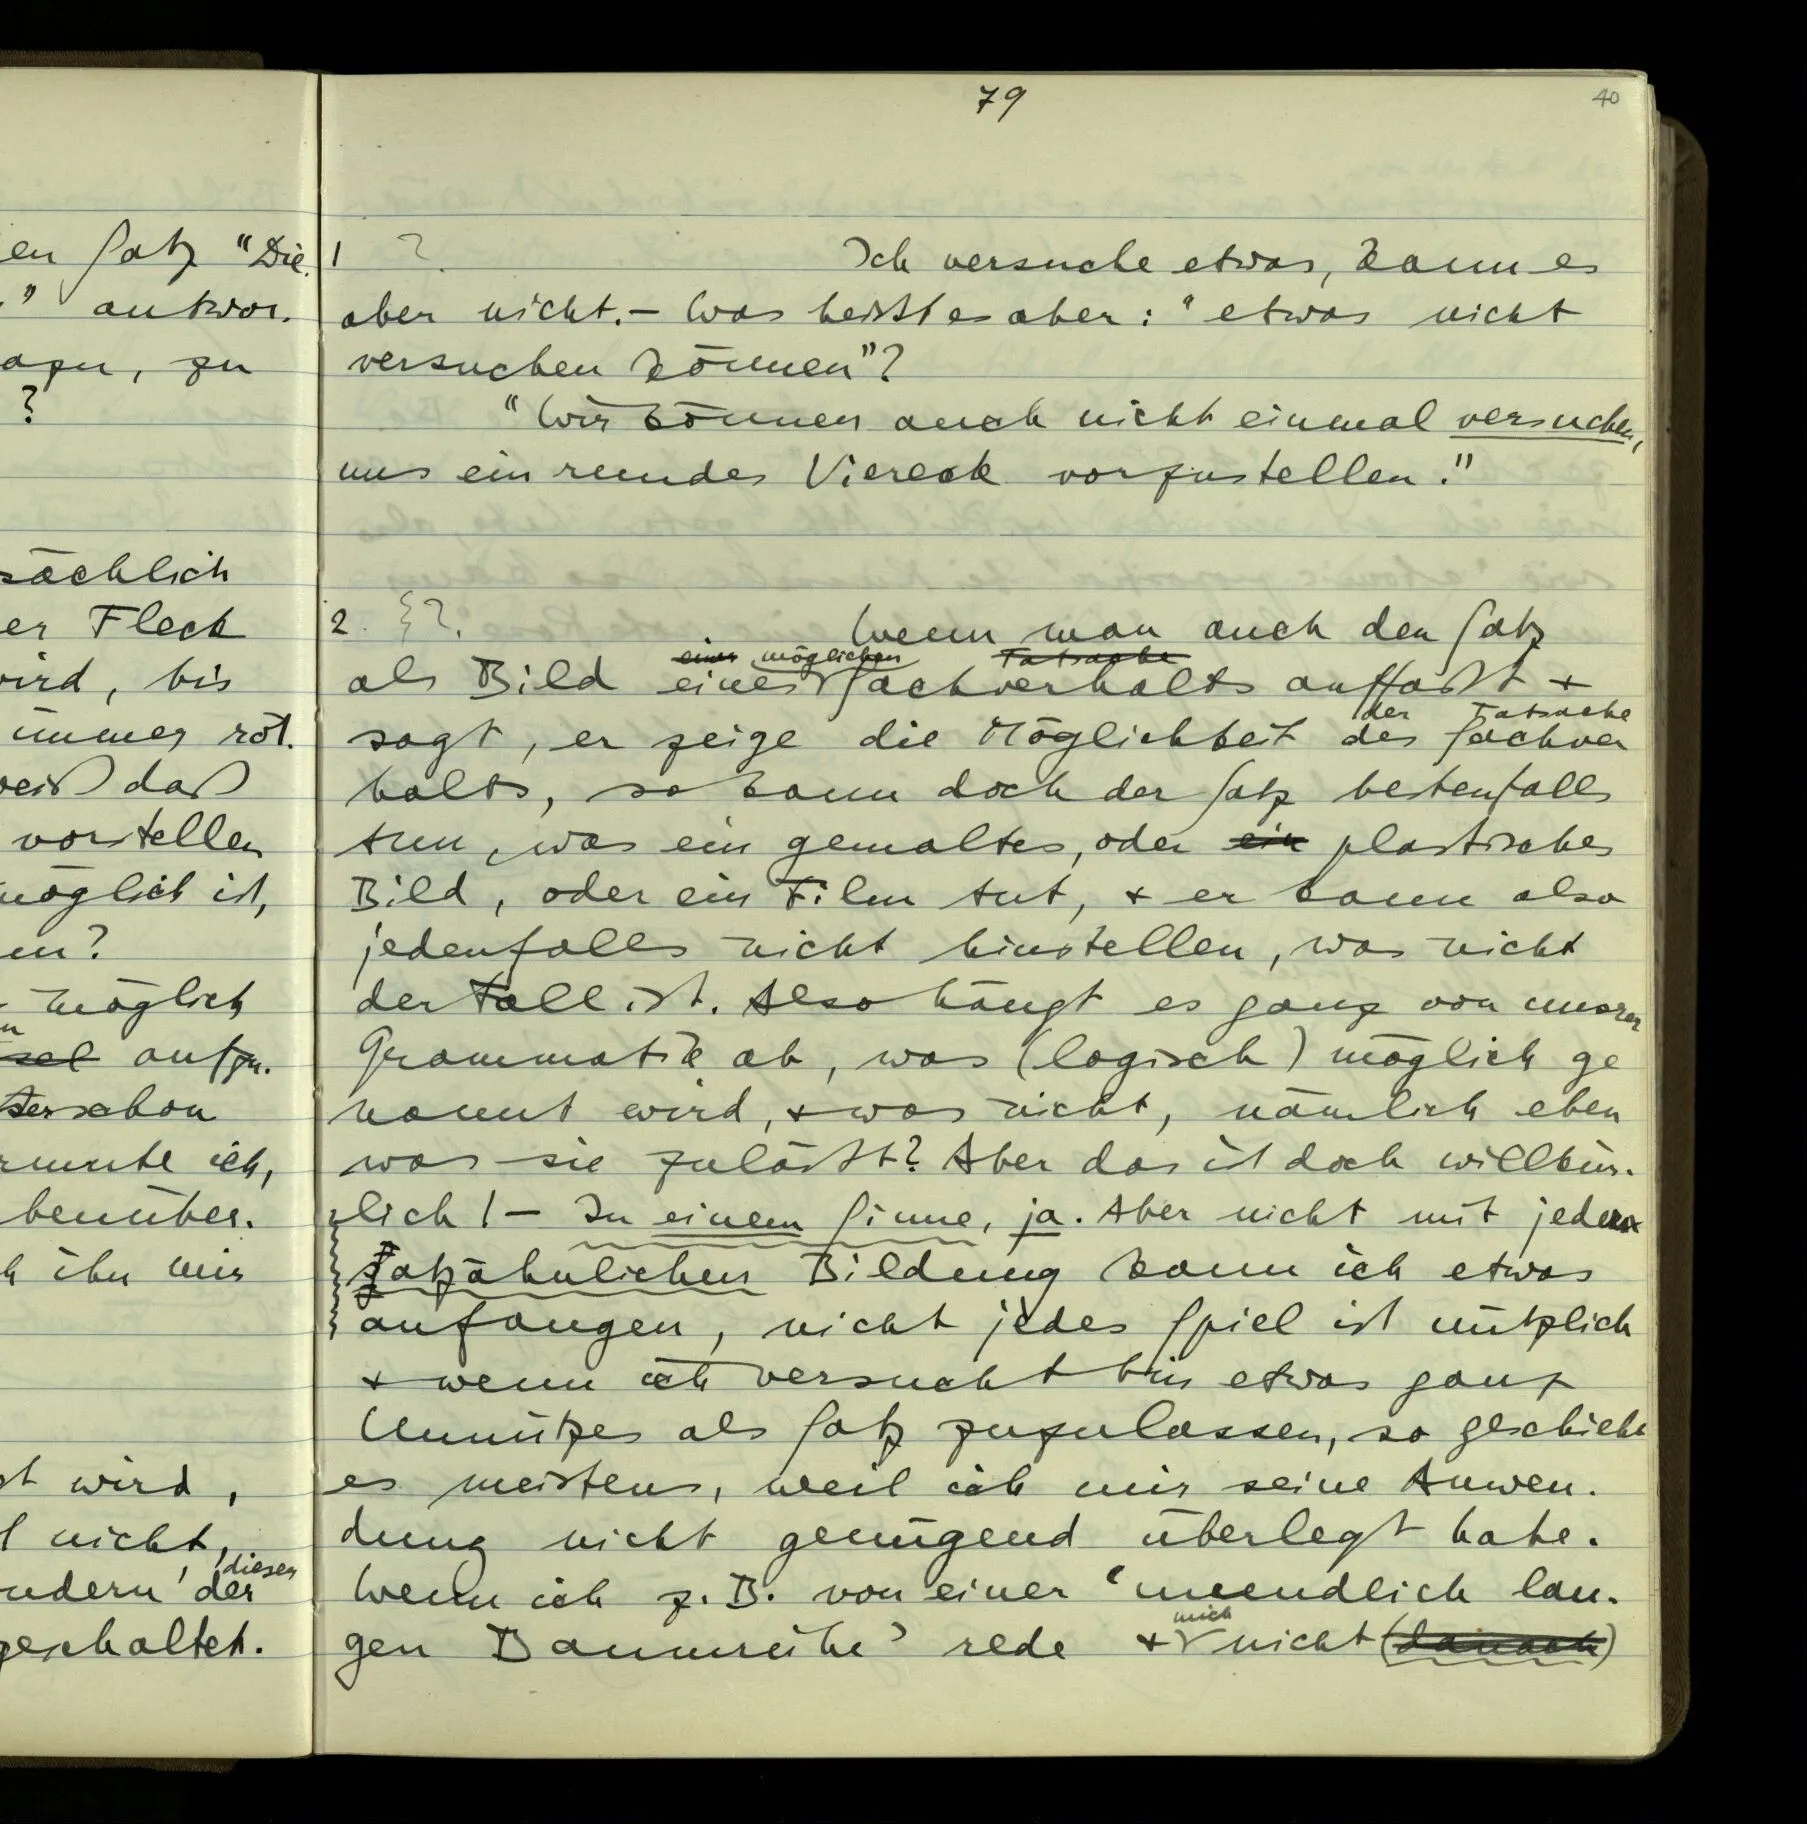 79
40
en Satz "Die
" antwor-
?
sächlich
er Fleck
wird, bis
immer rot.
weiß daß
vorstellen
möglich ist,
möglich
mute ich,
benüber.
h ihn mir
st wird,
nicht,
diesen
ndern der
geschaltet.
1 ? Ich versuche etwas, kann es
aber nicht. – Was heißt es aber: "etwas nicht
versuchen können"?
"Wir können auch nicht einmal versuchen,
uns ein rundes Viereck vorzustellen."
2 ?. Wenn man auch den Satz
einer möglichen Tatsache
als Bild eines Sachverhalts auffaßt +
der Tatsache
sagt, er zeige die Möglichkeit des Sachver
halts, so kann doch der Satz bestenfalls
tun, was ein gemaltes, oder ein plastisches
Bild, oder ein Film tut, + er kann also
jedenfalls nicht hinstellen, was nicht
der Fall ist. Also hängt es ganz von unserer
Grammatik ab, was (logisch) möglich ge
nannt wird, + was nicht, nämlich eben
was sie zuläßt? Aber das ist doch willkür-
lich! – In einem Sinne, ja. Aber nicht mit jeder
satzähnlichen Bildung kann ich etwas
anfangen, nicht jedes Spiel ist nützlich
+ wenn ich versucht bin etwas ganz
Unnützes als Satz zuzulassen, so geschieht
es meistens, weil ich mir seine Anwen-
dung nicht genügend überlegt habe.
Wenn ich z.B. von einer 'unendlich lan-
mich
gen Baumreihe' rede + nicht (danach)